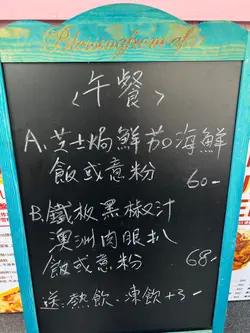 Blessingfromcafe
〈午餐〉
A. 芝士焗鮮茄海鮮
飯或意粉 60-
B. 鐵板黑椒汁
澳洲肉眼扒
飯或意粉 68-
送:熱飲,凍飲+3-